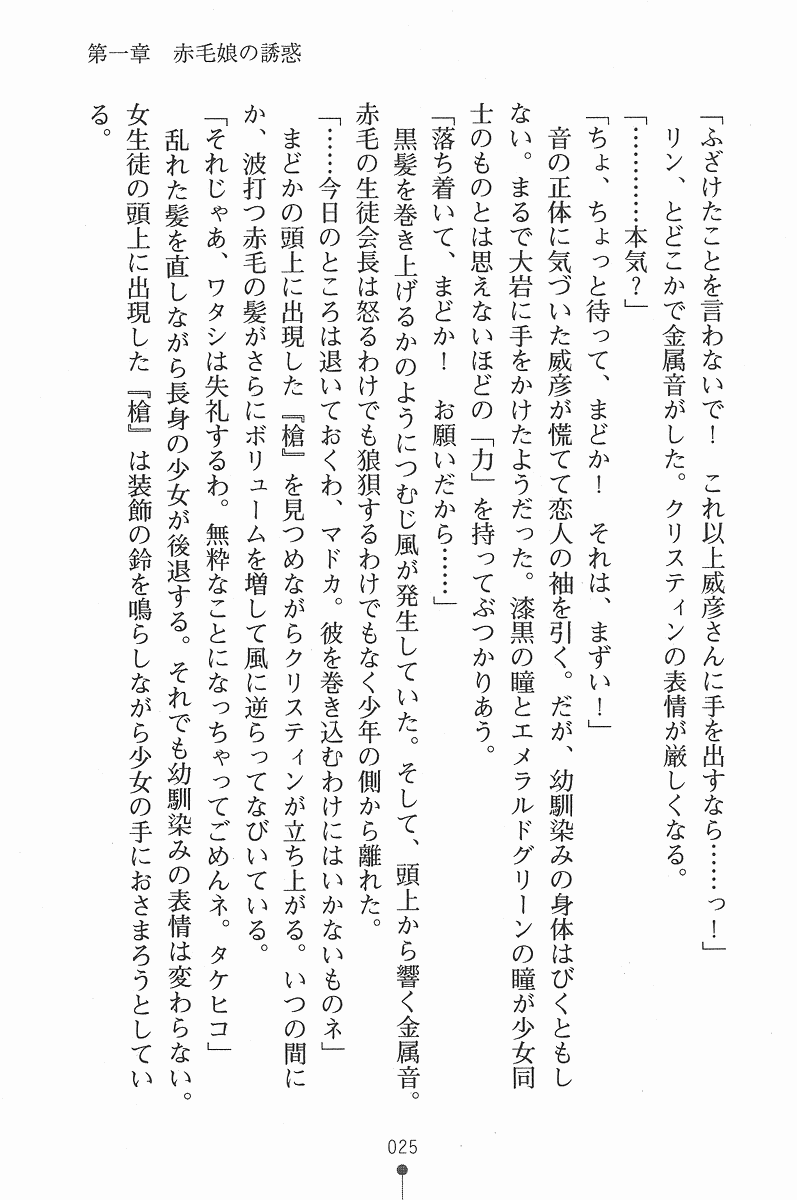 第一章　赤毛娘の誘惑
「ふざけたことを言わないで！　これ以上威彦さんに手を出すなら……っ！」
リン、とどこかで金属音がした。クリスティンの表情が厳しくなる。
「…………本気？」
「ちょ、ちょっと待って、まどか！　それは、まずい！」
音の正体に気づいた威彦が慌てて恋人の袖を引く。だが、幼馴染みの身体はびくともし
ない。まるで大岩に手をかけたようだった。漆黒の瞳とエメラルドグリーンの瞳が少女同
士のものとは思えないほどの「力」を持ってぶつかりあう。
「落ち着いて、まどか！　お願いだから……」
黒髪を巻き上げるかのようにつむじ風が発生していた。そして、頭上から響く金属音。
赤毛の生徒会長は怒るわけでも狼狽するわけでもなく少年の側から離れた。
「……今日のところは退いておくわ、マドカ。彼を巻き込むわけにはいかないものネ」
まどかの頭上に出現した『槍』を見つめながらクリスティンが立ち上がる。いつの間に
か、波打つ赤毛の髪がさらにボリュームを増して風に逆らってなびいている。
「それじゃあ、ワタシは失礼するわ。無粋なことになっちゃってごめんネ。タケヒコ」
乱れた髪を直しながら長身の少女が後退する。それでも幼馴染みの表情は変わらない。
女生徒の頭上に出現した『槍』は装飾の鈴を鳴らしながら少女の手におさまろうとしてい
る。
025